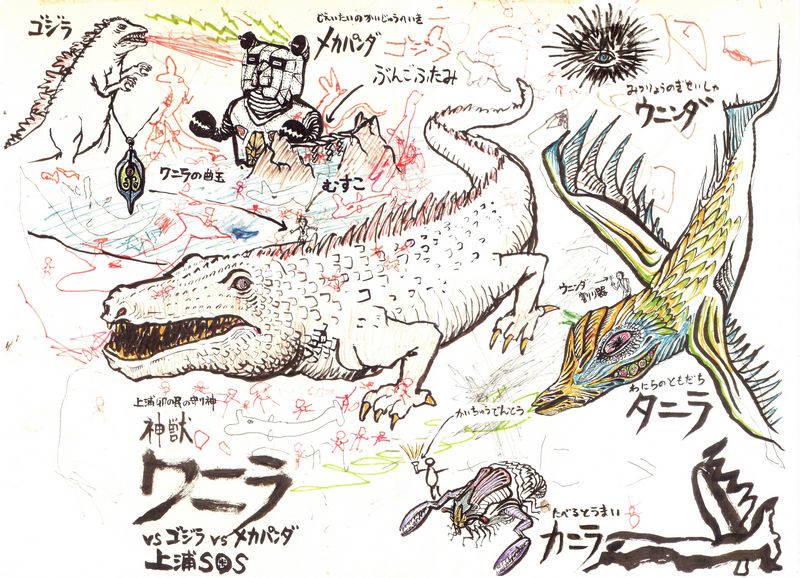 ゴジラ
じえいたいのかいじゅうへいき
メカパンダ
ゴジラ
ぶんごふたみ
みつりょうのぎせいしゃ
ウニンダ
ワニラの曲玉
むすこ
ウニンダ
割り器
わたらのともだち
タニラ
上浦町の民の守り神
神獣
ワニラ
vsゴジラvsメカパンダ
上浦SOS
かいちゅうでんとう
たべるとうまい
カニラ